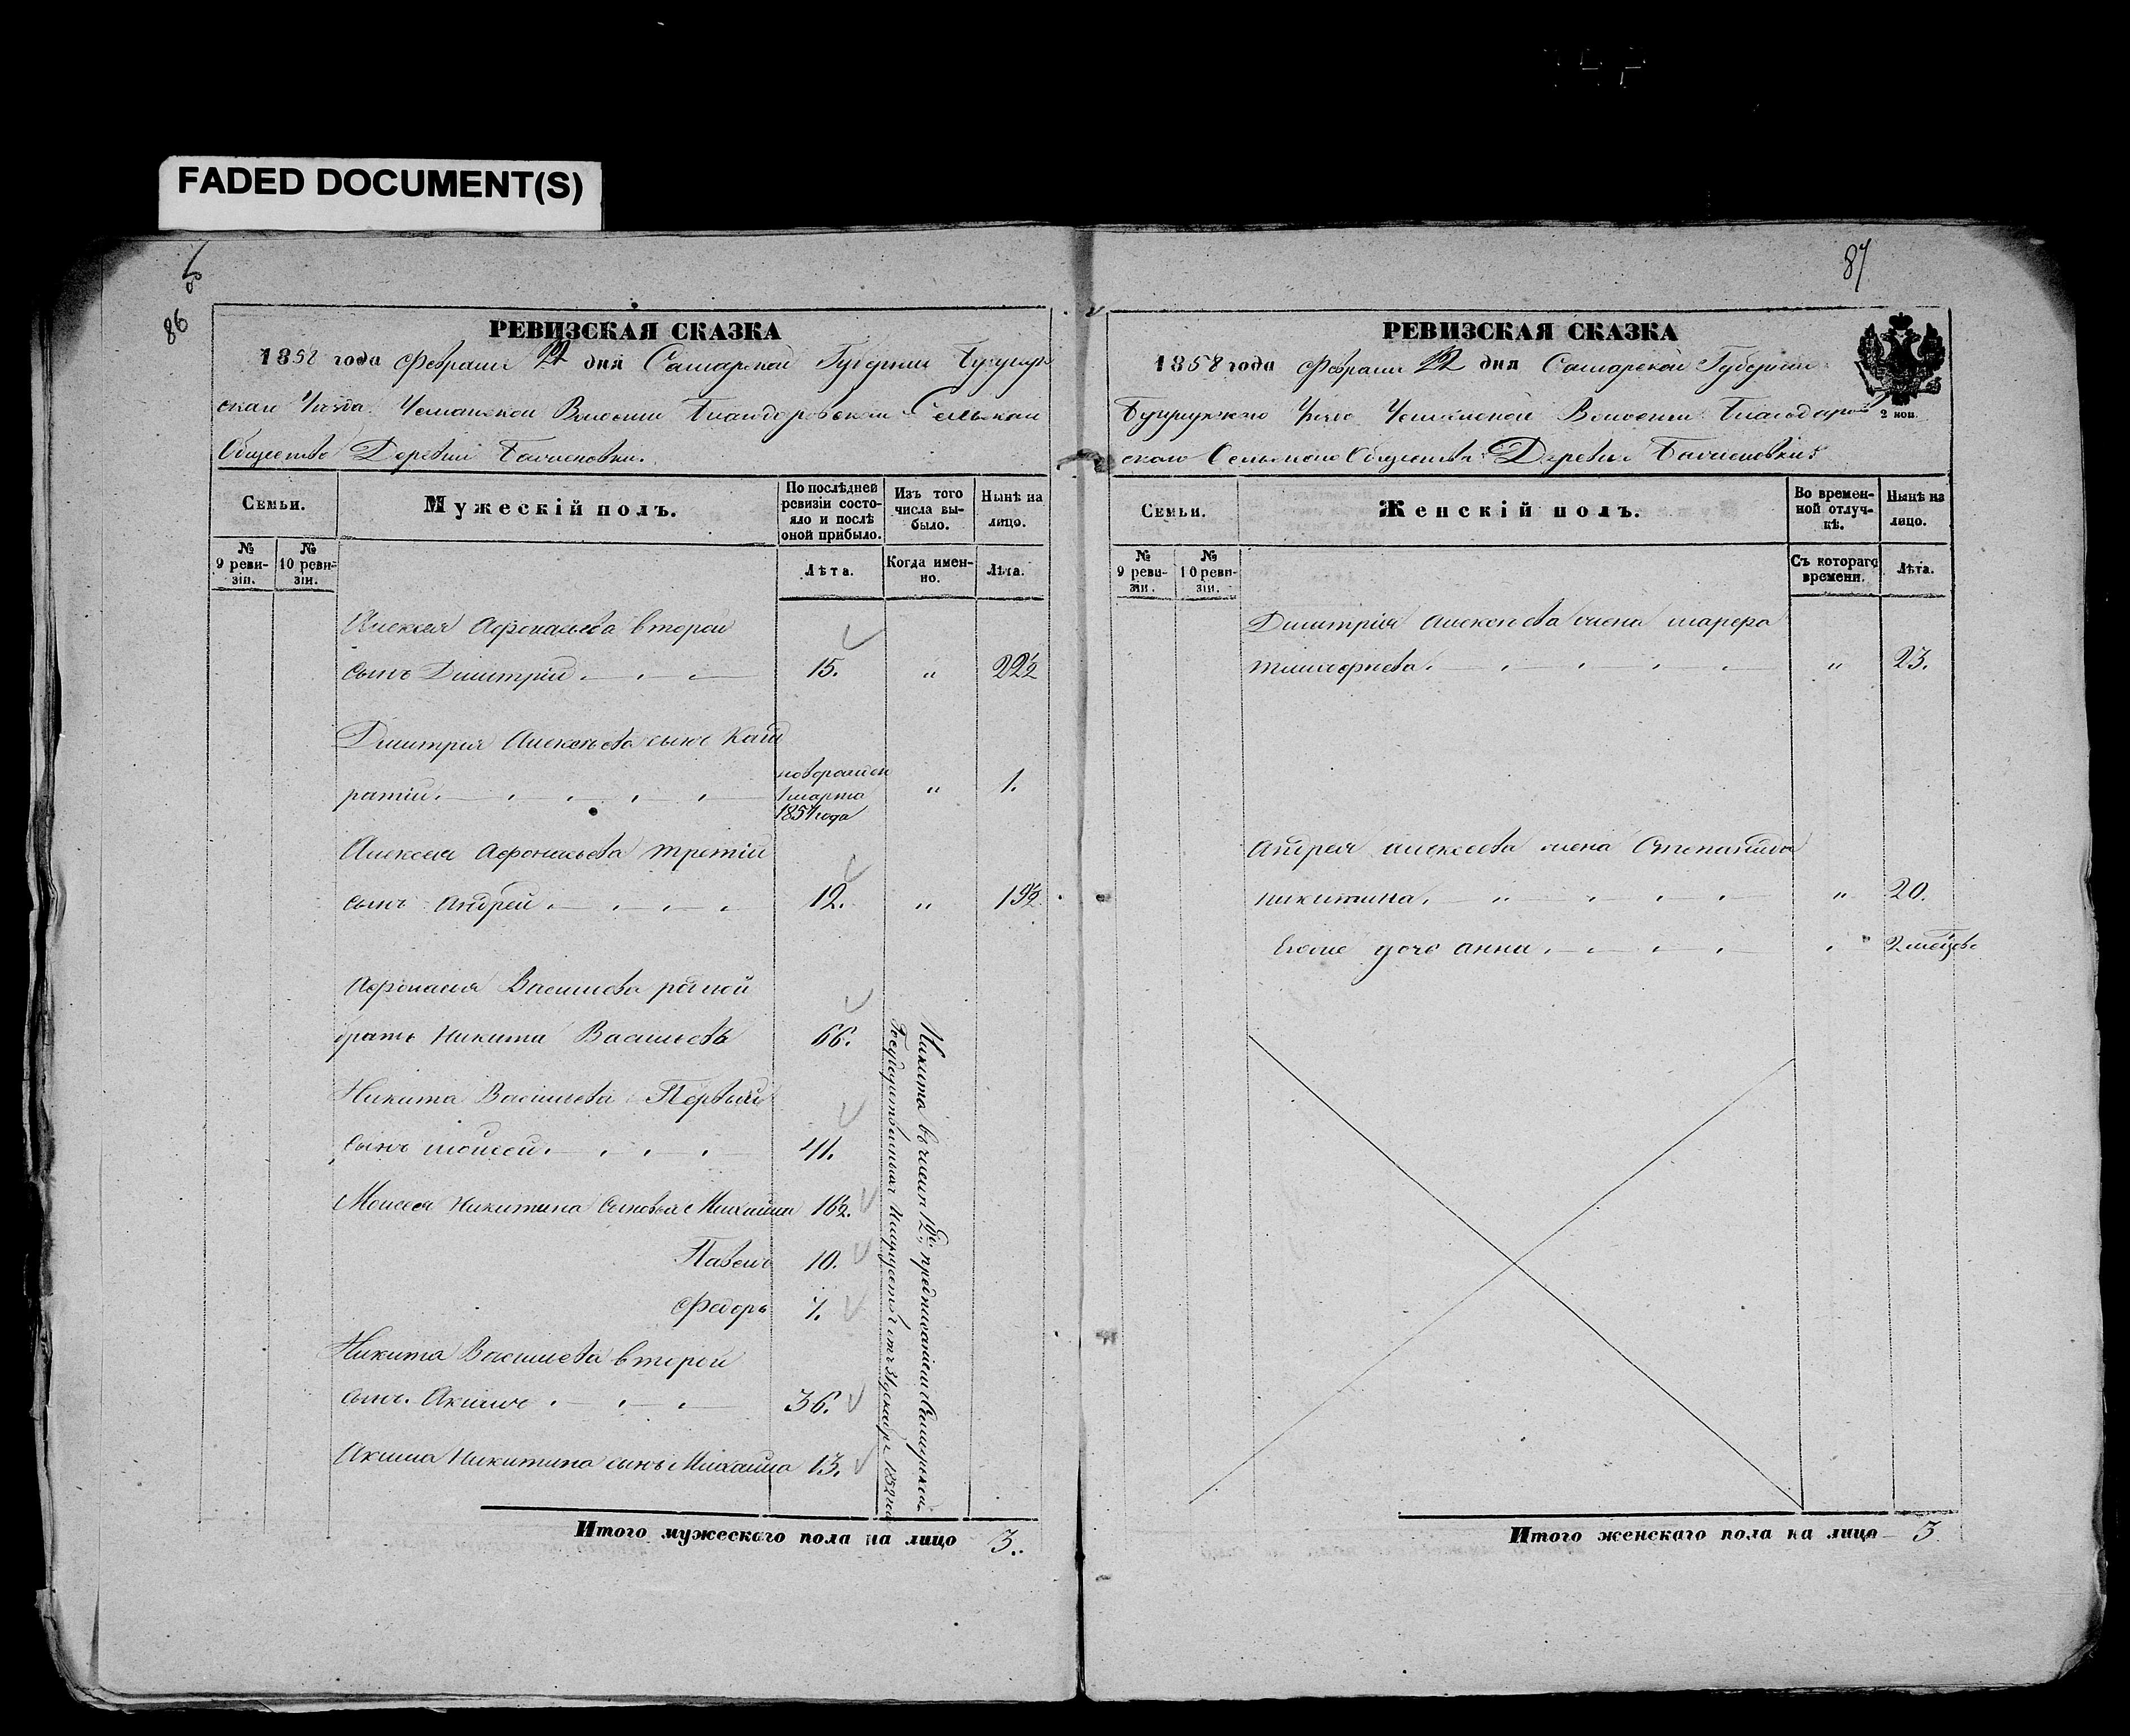 FADED DOCUMENT(S)
86
РЕВИЗСКАЯ СКАЗКА
1858 года Февраля 22 дня Самарской Губернии Бугурус
скаго Уезда Волости Сельскаго
Общества Деревни
Семьи.
Мужескій полъ.
По послѣдней ревизіи состояло и послѣ оной прибыло.
Изъ того числа выбыло.
Нынѣ на лицо.
№ 9 ревизіи.
№ 10 ревизіи.
Лѣта.
Когда именно.
Лѣта.
Алексея Афонасьева второй
сынъ Димитрій 15. " 22½
Димитрия Алексѣева сынъ Конд
ратій новорожден 1 марта 1857 года " 1.
Алексея Афонасьева третій
сынъ Андрей 12. " 19½
Афонасия Васильева родной
братъ Никита Васильевъ 66.
Никита Васильева Первый
сынъ Моисей 41.
Моисея Никитина Сыновья Михайла 16½.
Павелъ 10.
Федоръ 7.
Никита Васильева второй
сынъ Акимъ 36.
Акима Никитина сынъ Михайла 13.
Никита въ числи 12 предписаніемъ Самарской
Государственныхъ Имуществъ отъ декабря 1852 года
Итого мужескаго пола на лицо 3.
87
РЕВИЗСКАЯ СКАЗКА
1858 года Февраля 22 дня Самарской Губерніи
2 коп.
Уезда Волости Благодаров
скаго Сельскаго Общества Деревни
Семьи.
Женскій полъ.
Во временной отлучкѣ.
Нынѣ на лицо.
№ 9 ревизіи.
№ 10 ревизіи.
Съ котораго времени.
Лѣта.
Димитрія Алексѣева жена Марфа
Тимофеева " 23.
Андрея Алексеева жена Степанида
Никитина " 20.
Егоже дочь Анна 2 месецовъ
Итого женскаго пола на лицо 3